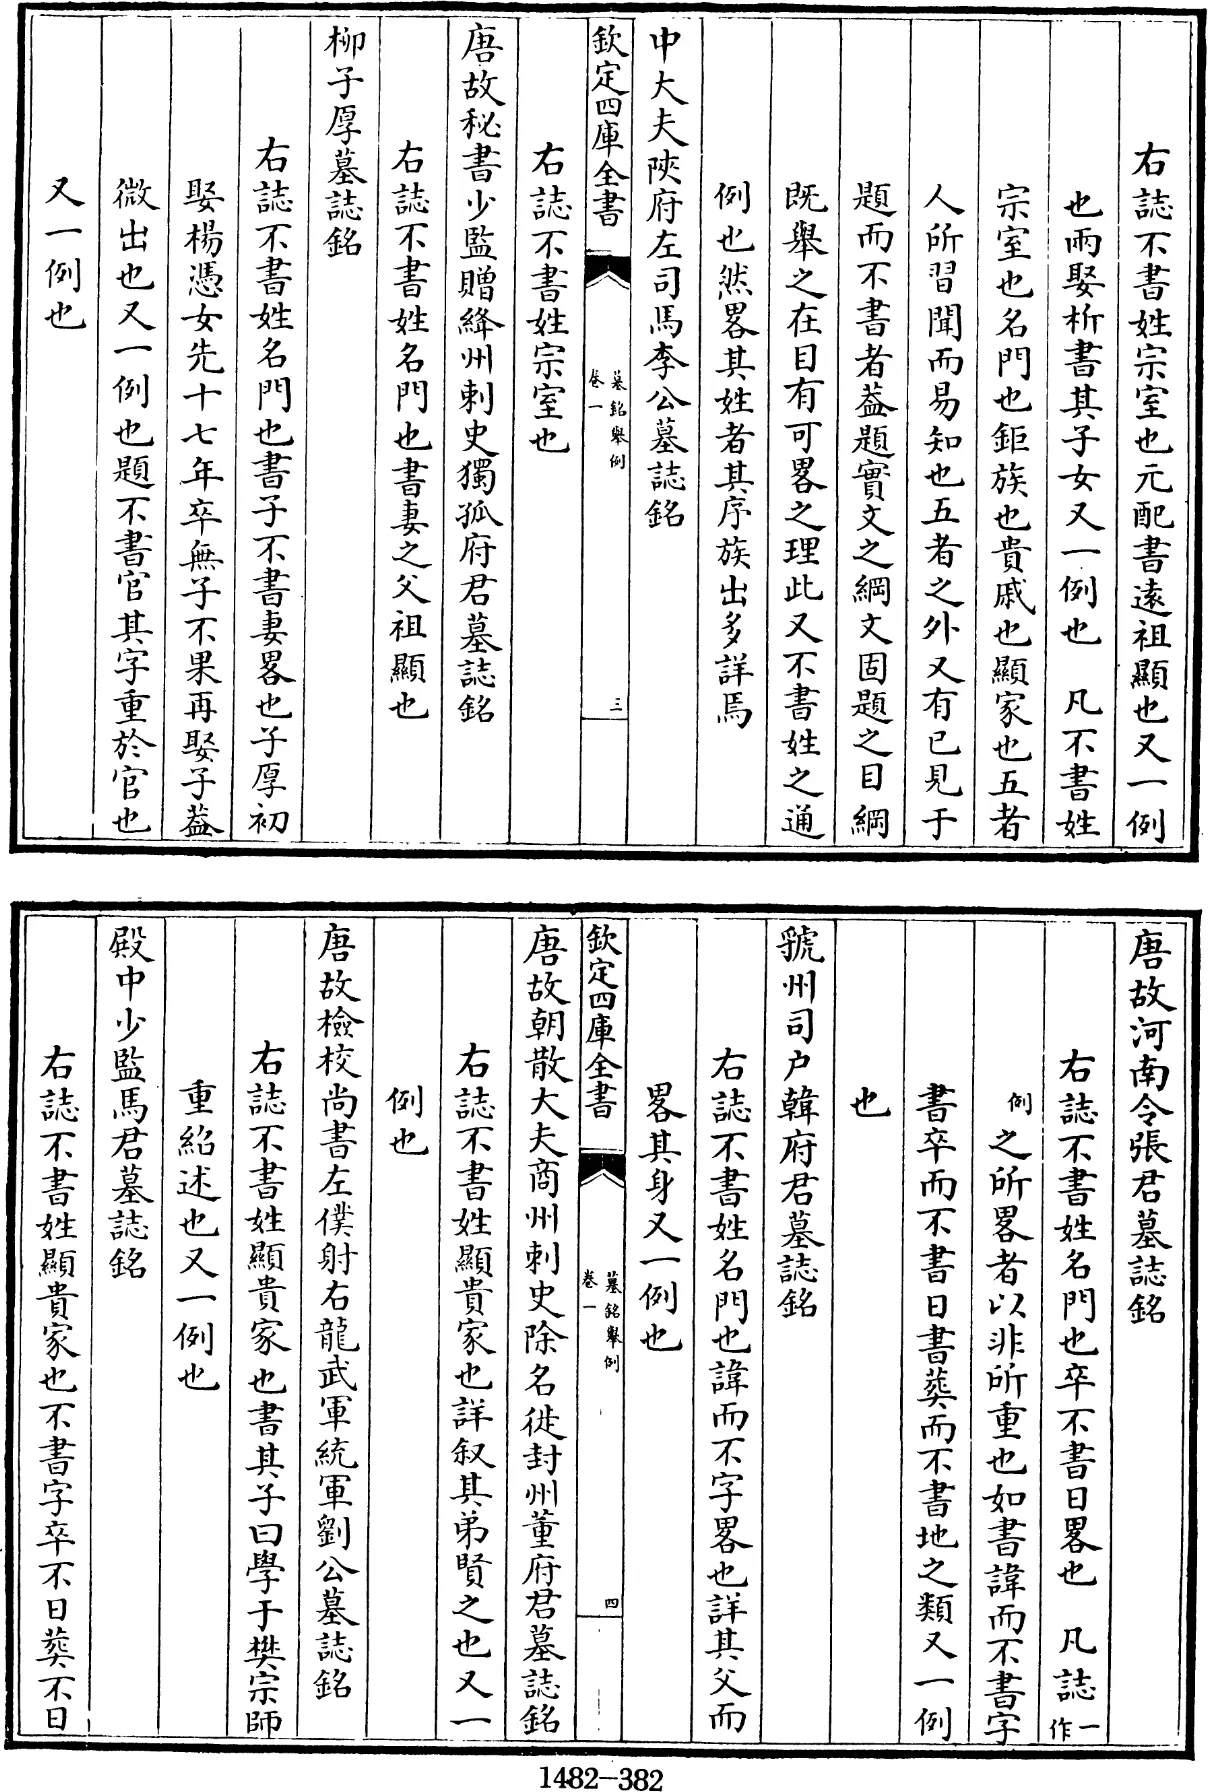 右誌不書姓宗室也元配書遠祖顯也又一例
也兩娶析書其子女又一例也　凡不書姓
宗室也名門也鉅族也貴戚也顯家也五者
人所習聞而易知也五者之外又有已見于
題而不書者葢題實文之綱文固題之目綱
既舉之在目有可畧之理此又不書姓之通
例也然畧其姓者其序族出多詳焉
中大夫陜府左司馬李公墓誌銘
右誌不書姓宗室也
欽定四庫全書
墓銘舉例
卷一
三
唐故秘書少監贈絳州刺史獨孤府君墓誌銘
右誌不書姓名門也書妻之父祖顯也
柳子厚墓誌銘
右誌不書姓名門也書子不書妻畧也子厚初
娶楊憑女先十七年卒無子不果再娶子葢
微出也又一例也題不書官其字重於官也
又一例也
唐故河南令張君墓誌銘
右誌不書姓名門也卒不書日畧也　凡誌一作
例之所畧者以非所重也如書諱而不書字
書卒而不書日書葬而不書地之類又一例
也
虢州司户韓府君墓誌銘
右誌不書姓名門也諱而不字畧也詳其父而
畧其身又一例也
欽定四庫全書
墓銘舉例
卷一
四
唐故朝散大夫商州刺史除名徙封州董府君墓誌銘
右誌不書姓顯貴家也詳叙其弟賢之也又一
例也
唐故檢校尚書左僕射右龍武軍統軍劉公墓誌銘
右誌不書姓顯貴家也書其子曰學于樊宗師
重紹述也又一例也
殿中少監馬君墓誌銘
右誌不書姓顯貴家也不書字卒不日葬不日
1482-382